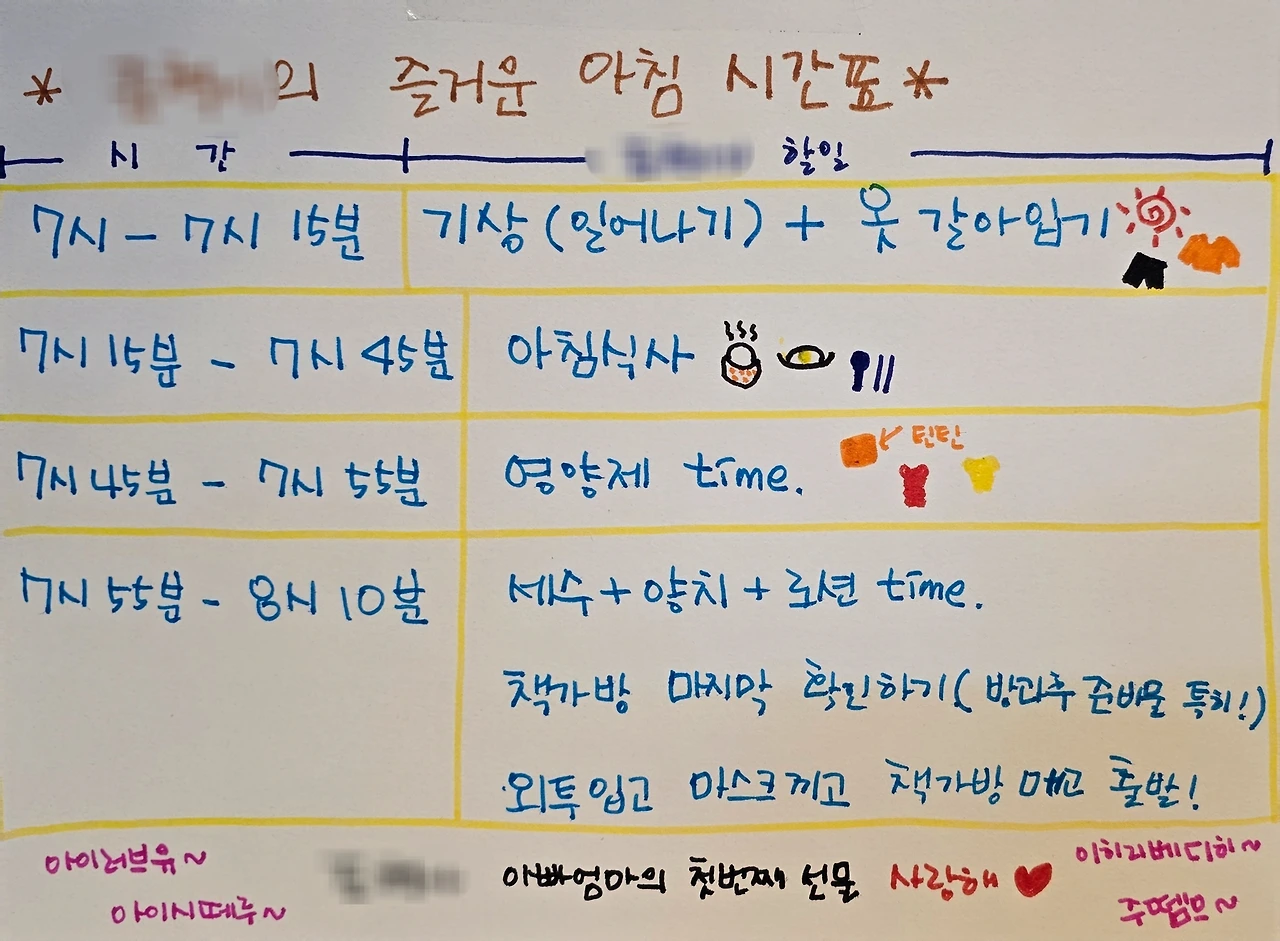 * 의 즐거운 아침 시간표 *
시 간 할일
7시 - 7시 15분 기상 (일어나기) + 옷 갈아입기
7시 15분 - 7시 45분 아침식사
7시 45분 - 7시 55분 영양제 time. 틴틴
7시 55분 - 8시 10분 세수 + 양치 + 로션 time.
책가방 마지막 확인하기 (방과후 준비물 특히!)
외투 입고 마스크끼고 책가방 매고 출발!
아이러브유~ 이히리베디히~
아빠엄마의 첫번째 선물 사랑해
아이시떼루~ 주뗌므~